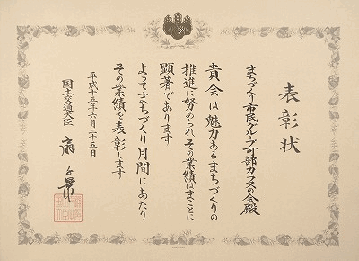 表彰状
まちづくり市民グループ下部カワズの会殿
貴会は魅力あるまちづくりの
推進に努められその業績はまことに
顕著であります
よってまちづくり月間にあたり
その業績を表彰します
平成十五年六月二十五日
国土交通大臣 扇千景